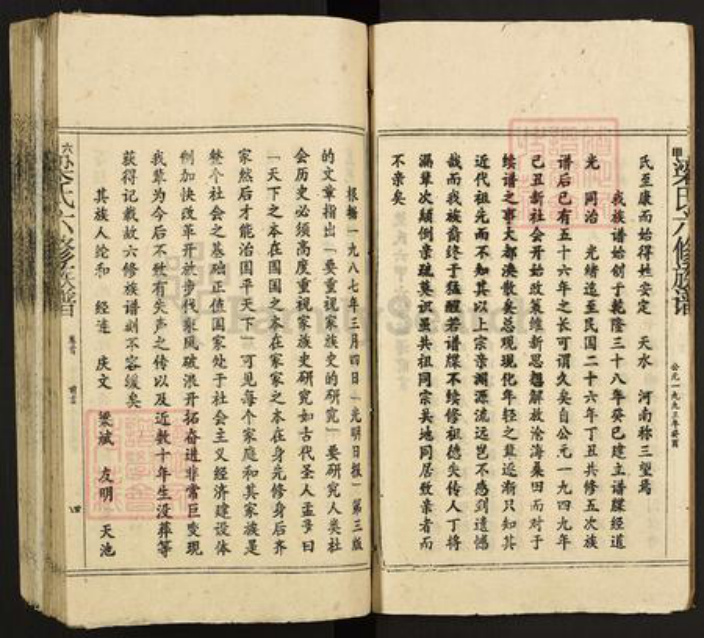 梁氏六修族譜
公元一九九三年癸酉
氏至康而始得姓安定　天水　河南称三望焉
我族谱始创于乾隆三十八年癸巳建立谱牒经道
光　同治　光绪迄至民国二十六年丁丑共修五次族
谱后已有五十六年之长可谓久矣自公元一九四九年
已丑新社会开始政策维新思想解放沧海桑田而对于
续谱之事大都涣散矣总观现化年轻之辈逐渐只知其
近代祖先而不知其以上宗亲渊源流远岂不感到遗憾
哉而我族裔终于猛醒若谱牒不续修祖德失传人丁将
漏辈次颠倒亲疏莫识虽共祖同宗吴地同居致亲者而
不亲矣
根据一九八七年三月四日「光明日报」第三版
的文章指出「要重视家族史的研究」要研究人类社
会历史必须高度重视家族史研究如古代圣人孟子曰
「天下之本在国国之本在家家之本在身先修身后齐
家然后才能治国平天下」可见每个家庭和其家族是
整个社会之基础正值国家处于社会主义经济建设体
制加快改革开放步伐乘风破浪开拓奋进非常巨变现
我辈为今后不致有失声之传以及近数十年生没葬等
获得记载故六修族谱刻不容缓矣
其族人纶和　经莲　庆文　梁斌　友明　天池
六梁氏六修族譜
卷首
四
FamilySearch